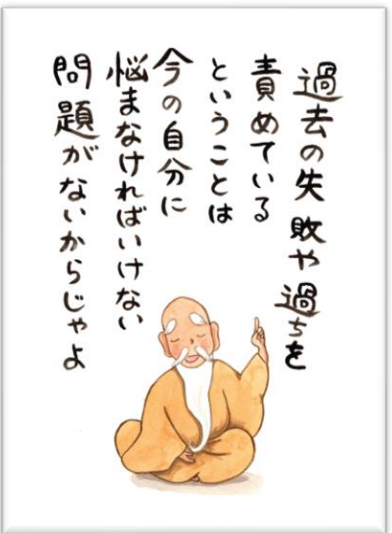 過去の失敗や過ちを
責めている
ということは
今の自分に
悩まなければいけない
問題がないからじゃよ